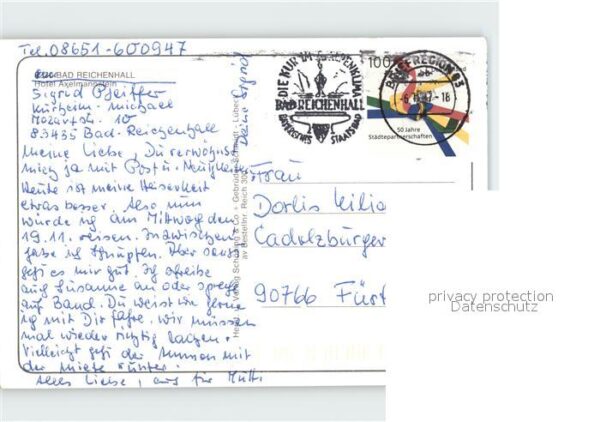 Tel. 08651-600947
BAD REICHENHALL
Hotel Axelmannstein
Sigrid Pfeiffer
Kurheim-Michael
Mozartstr. 10
83435 Bad-Reichenhall
Meine Liebe, Du verwöhnst
mich ja mit Post u. Neuigkeiten
Heute ist meine Heiserkeit
etwas besser. Also nun
würde ich am Mittwoch den
19.11. reisen. Inzwischen
habe ich Schnupfen. Aber sonst
geht's mir gut. Ich schreibe
auch Susanne an oder spreche
auf Band. Du weisst wie gerne
ich mit Dir fahre. Wir müssen
mal wieder richtig lachen.
Vielleicht geht der
der Miete runter.
Alles Liebe, auch für Mutti
Deine Sigrid
Verlag Schöning & Co + Gebrüder Schmidt, Lübeck
Bestellnr. Reich 30
DIE KUR IM ALPENKLIMA
BAD REICHENHALL
BAYERISCHES STAATSBAD
BRIEFREGION 83
100
50 Jahre
Städtepartnerschaften
Frau
Dorlis Kilia
Cadolzburger
90766 Fürt
privacy protection
Datenschutz